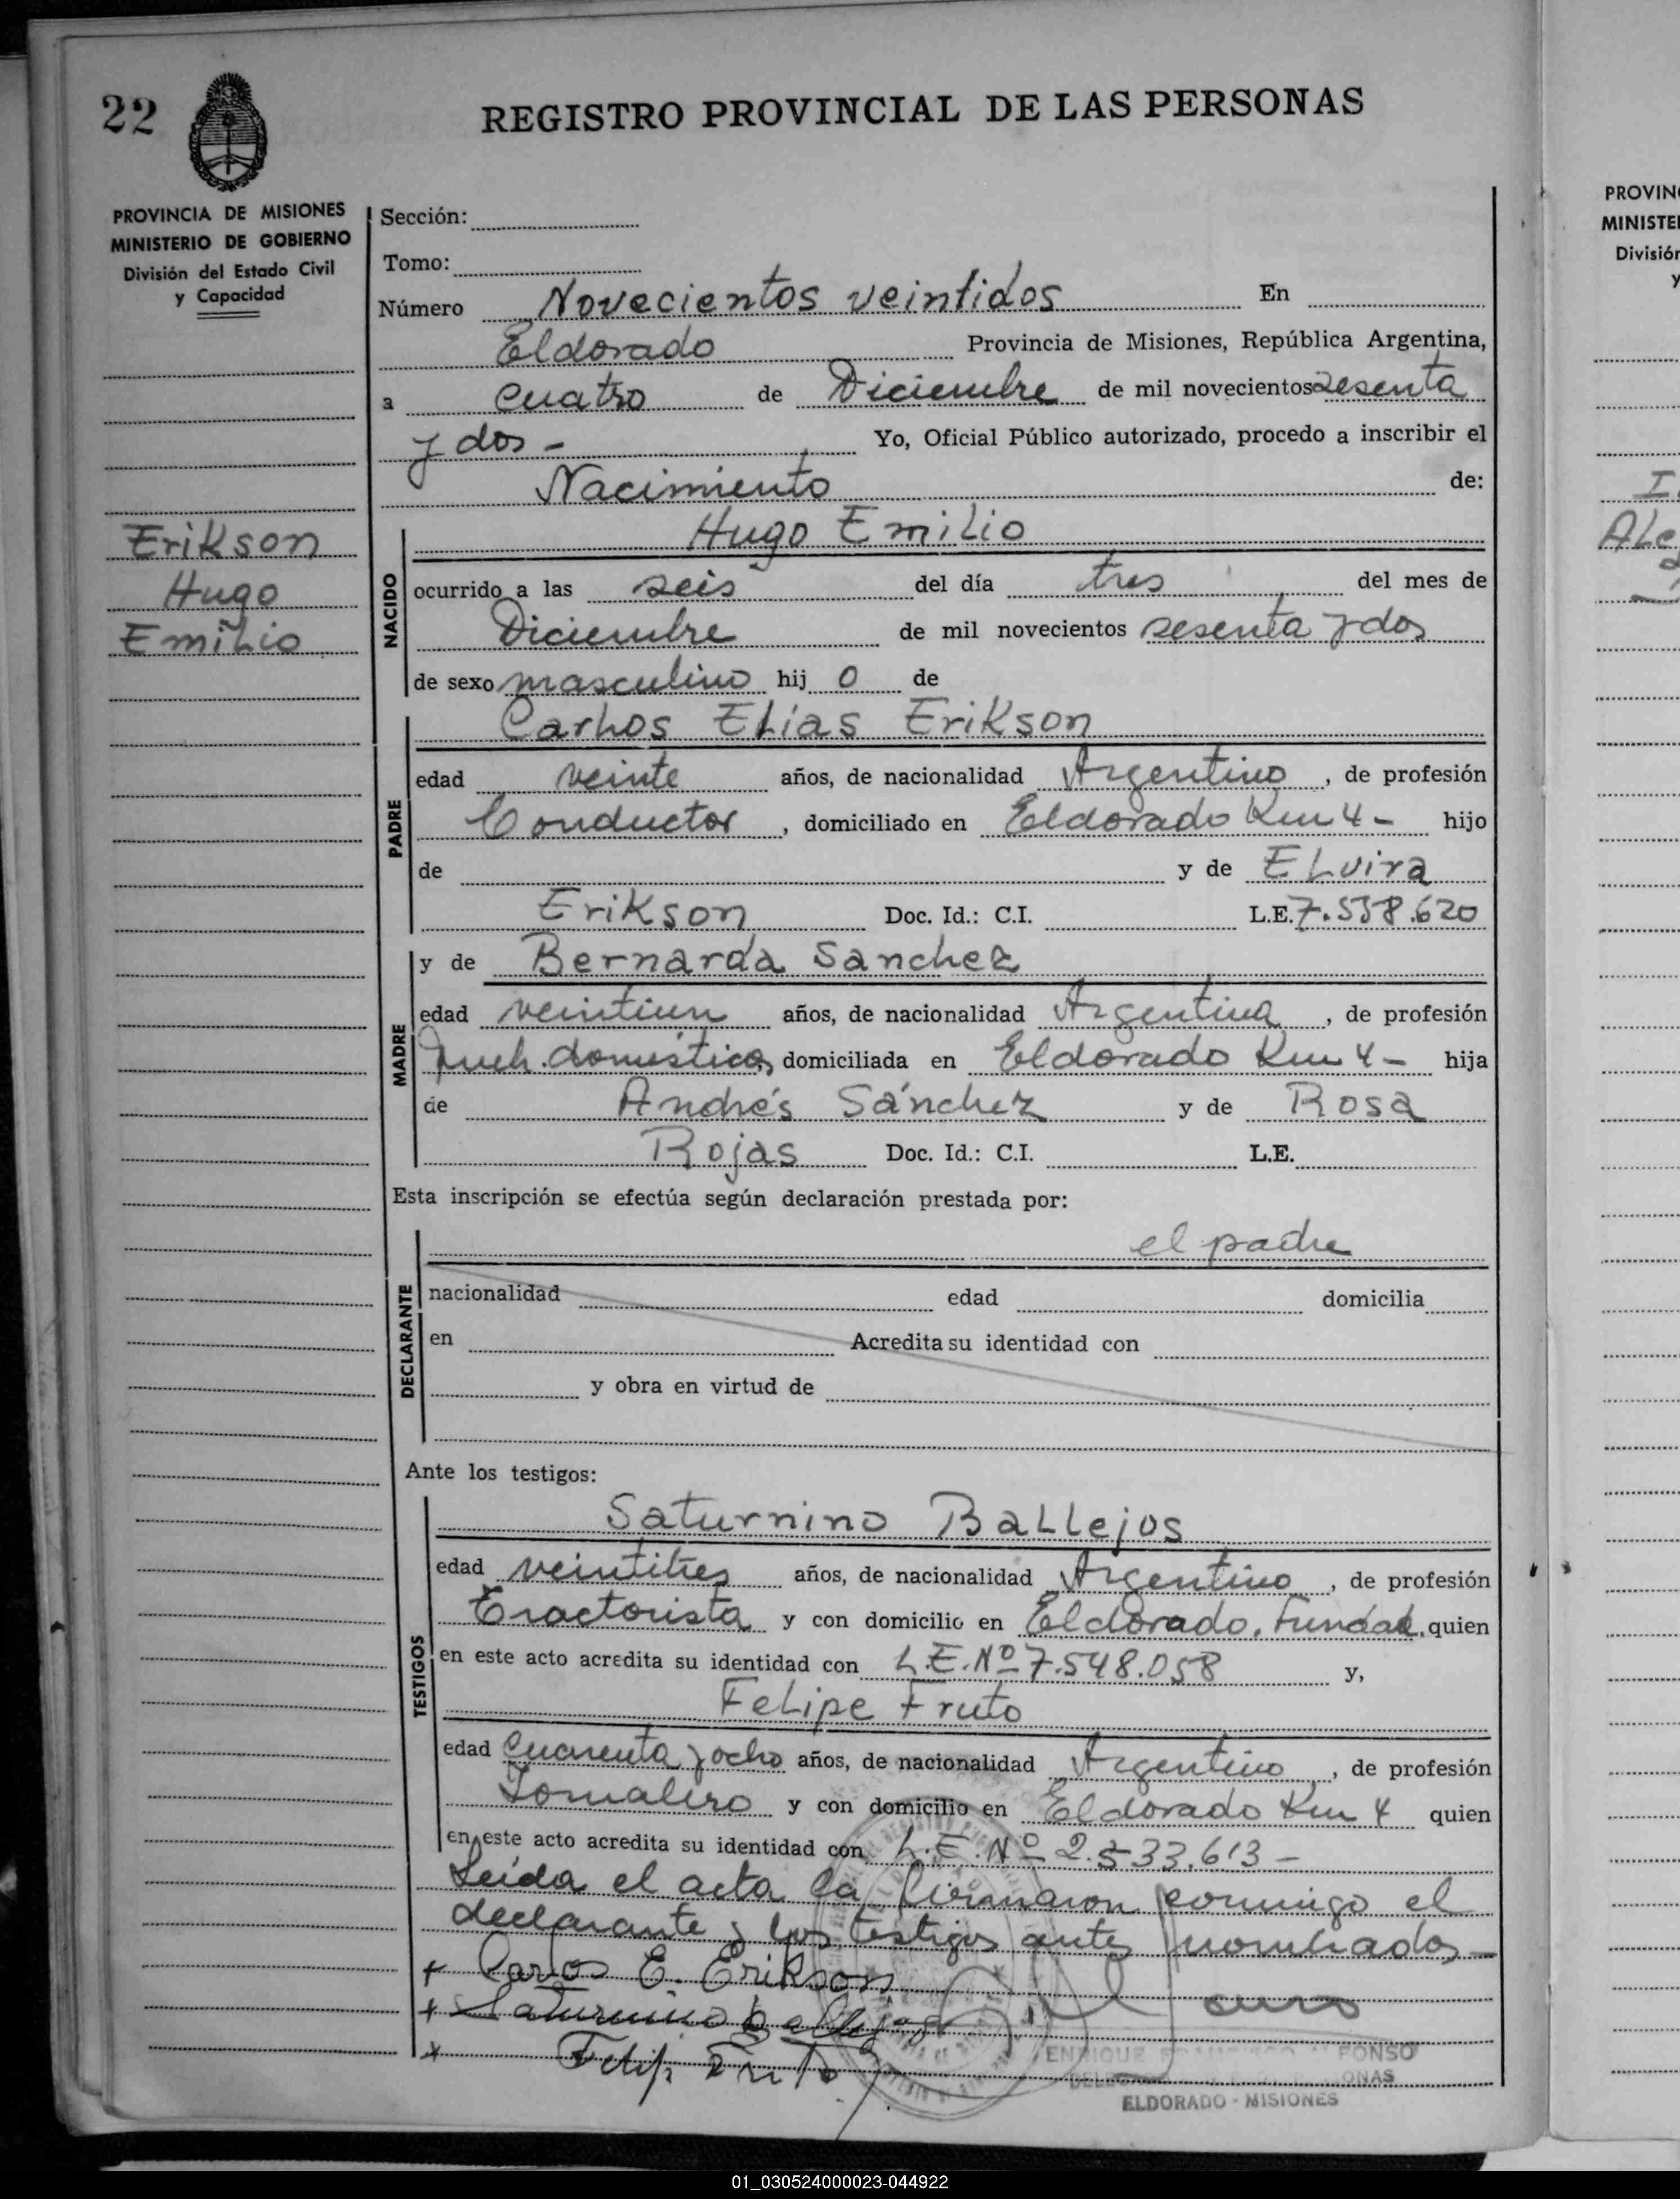 22
REGISTRO PROVINCIAL DE LAS PERSONAS
PROVINCIA DE MISIONES
MINISTERIO DE GOBIERNO
División del Estado Civil
y Capacidad
Erikson
Hugo
Emilio
Sección:
Tomo:
Número Novecientos veintidos En
Eldorado Provincia de Misiones, República Argentina,
a cuatro de Diciembre de mil novecientos sesenta
y dos - Yo, Oficial Público autorizado, procedo a inscribir el
Nacimiento de:
NACIDO
Hugo Emilio
ocurrido a las seis del día tres del mes de
Diciembre de mil novecientos sesenta y dos
de sexo masculino hij o de
PADRE
Carlos Elías Erikson
edad veinte años, de nacionalidad Argentino, de profesión
Conductor, domiciliado en Eldorado Km 4 - hijo
de y de Elvira
Erikson Doc. Id.: C.I. L.E. 7.558.620
MADRE
y de Bernarda Sanchez
edad veintiun años, de nacionalidad Argentina, de profesión
domestica, domiciliada en Eldorado Km 4 - hija
de Andrés Sánchez y de Rosa
Rojas Doc. Id.: C.I. L.E.
Esta inscripción se efectúa según declaración prestada por:
DECLARANTE
el padre
nacionalidad edad domicilia
en Acredita su identidad con
y obra en virtud de
Ante los testigos:
TESTIGOS
Saturnino Ballejos
edad veintitres años, de nacionalidad Argentino, de profesión
Tractorista y con domicilio en Eldorado, Fundal. quien
en este acto acredita su identidad con L.E. Nº 7.548.058 y,
Felipe Fruto
edad cuarenta y ocho años, de nacionalidad Argentino, de profesión
Jornalero y con domicilio en Eldorado Km 4 quien
en este acto acredita su identidad con L.E. Nº 2.533.613 -
Leída el acta la firmaron conmigo el
declarante y los testigos antes nombrados -
+ Carlos E. Erikson
+ Saturnino Ballejos
+ Felip Fruto
ENRIQUE FRANCISCO ALFONSO
ELDORADO - MISIONES
PROVIN
MINISTE
División
y
Ale
01_030524000023-044922